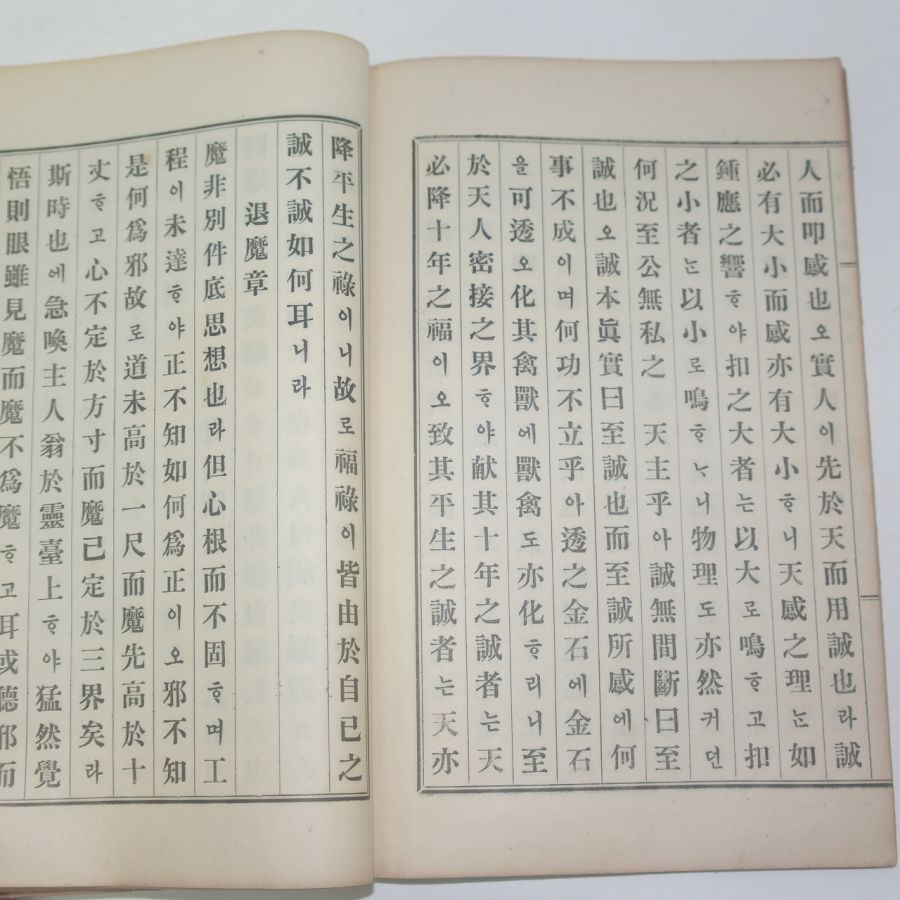 人而叩感也오實人이先於天而用誠也라誠
必有大小而感亦有大小ᄒᆞ니天感之理ᄂᆞᆫ如
鍾應之響ᄒᆞ야扣之大者는以大로鳴ᄒᆞ고扣
之小者ᄂᆞᆫ以小로鳴ᄒᆞᄂᆞ니物理도亦然커던
何況至公無私之 天主乎아誠無間斷曰至
誠也오誠本眞實曰至誠也而至誠所感에何
事不成이며何功不立乎아透之金石에金石
을可透오化其禽獸에獸禽도亦化ᄒᆞ리니至
於天人密接之界ᄒᆞ야献其十年之誠者는天
必降十年之福이오致其平生之誠者는天亦
降平生之祿이니故로福祿이皆由於自已之
誠不誠如何耳니라
退魔章
魔非別件底思想也라但心根而不固ᄒᆞ며工
程이未達ᄒᆞ야正不知如何爲正이오邪不知
是何爲邪故로道未高於一尺而魔先高於十
丈ᄒᆞ고心不定於方寸而魔已定於三界矣라
斯時也에急喚主人翁於靈臺上ᄒᆞ야猛然覺
悟則眼雖見魔而魔不爲魔ᄒᆞ고耳或聽邪而